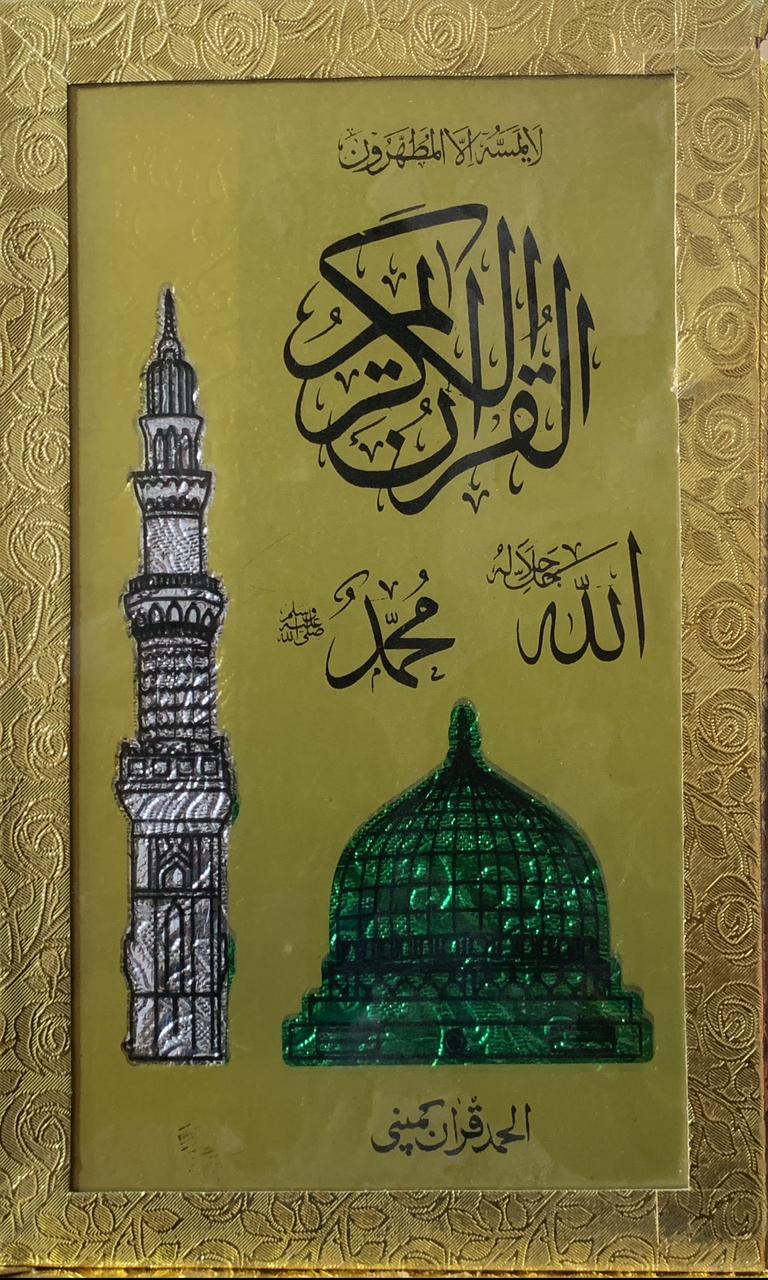 لَا یَمَسُّهٗۤ اِلَّا الْمُطَهَّرُوْنَ
القرآن الكريم
الله جل جلالہ
محمد صلی اللہ علیہ وسلم
الحمد قرآن کمپنی